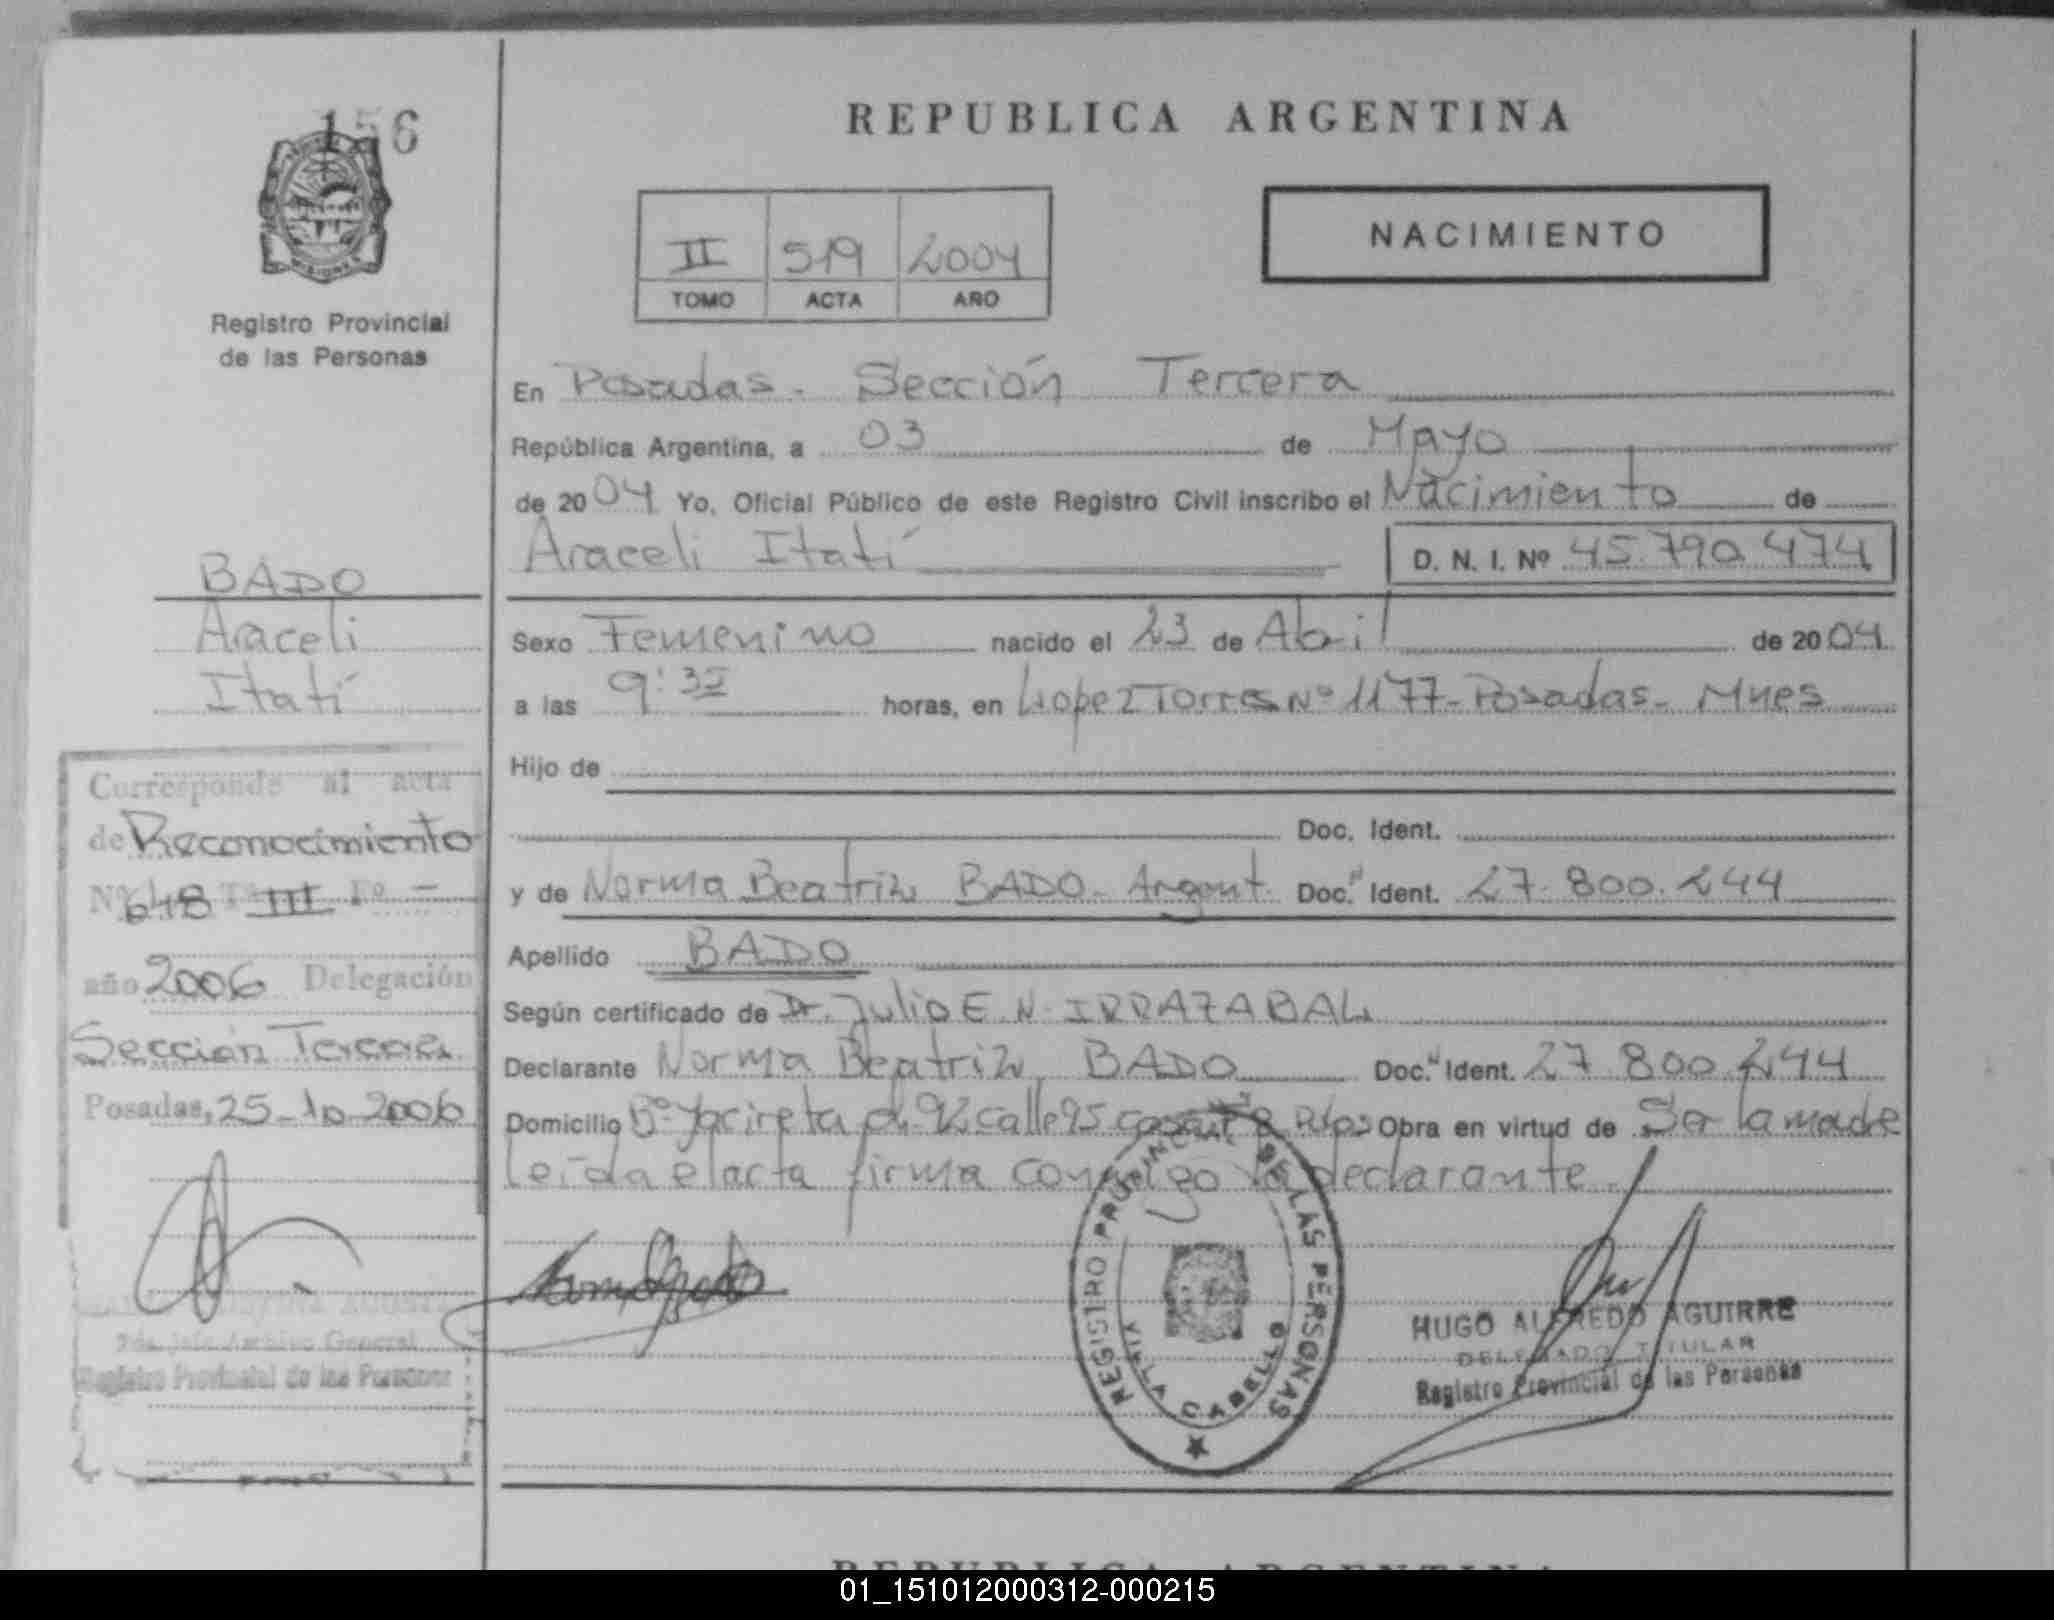 156
REPUBLICA ARGENTINA
II 519 2004
TOMO ACTA AÑO
NACIMIENTO
MISIONES
Registro Provincial
de las Personas
En Posadas - Sección Tercera
República Argentina, a 03 de Mayo
de 2004 Yo, Oficial Público de este Registro Civil inscribo el Nacimiento de
Araceli Itatí D. N. I. Nº 45.790.474
Sexo Femenino nacido el 23 de Abril de 2004
a las 9:32 horas, en Lopez Torres Nº 1177 - Posadas - Mnes
Hijo de
Doc. Ident.
y de Norma Beatriz BADO - Argent. Doc. Ident. 27.800.244
Apellido BADO
Según certificado de Dr. Julio E. N. IRRAZABAL
Declarante Norma Beatriz BADO Doc. Ident. 27.800.244
Domicilio Bº Yacireta 92 calle 95 casa Obra en virtud de Ser la madre
leída el acta firma conmigo la declarante.
BADO
Araceli
Itatí
Corresponde al acta
de Reconocimiento
Nº 648 Tº III Fº -
año 2006 Delegación
Sección Tercera
Posadas, 25-10-2006
Archivo General
Registro Provincial de las Personas
REGISTRO PROVINCIAL DE LAS PERSONAS
VILLA CABELLO
HUGO ALFREDO AGUIRRE
DELEGADO TITULAR
Registro Provincial de las Personas
REPUBLICA ARGENTINA
01_151012000312-000215